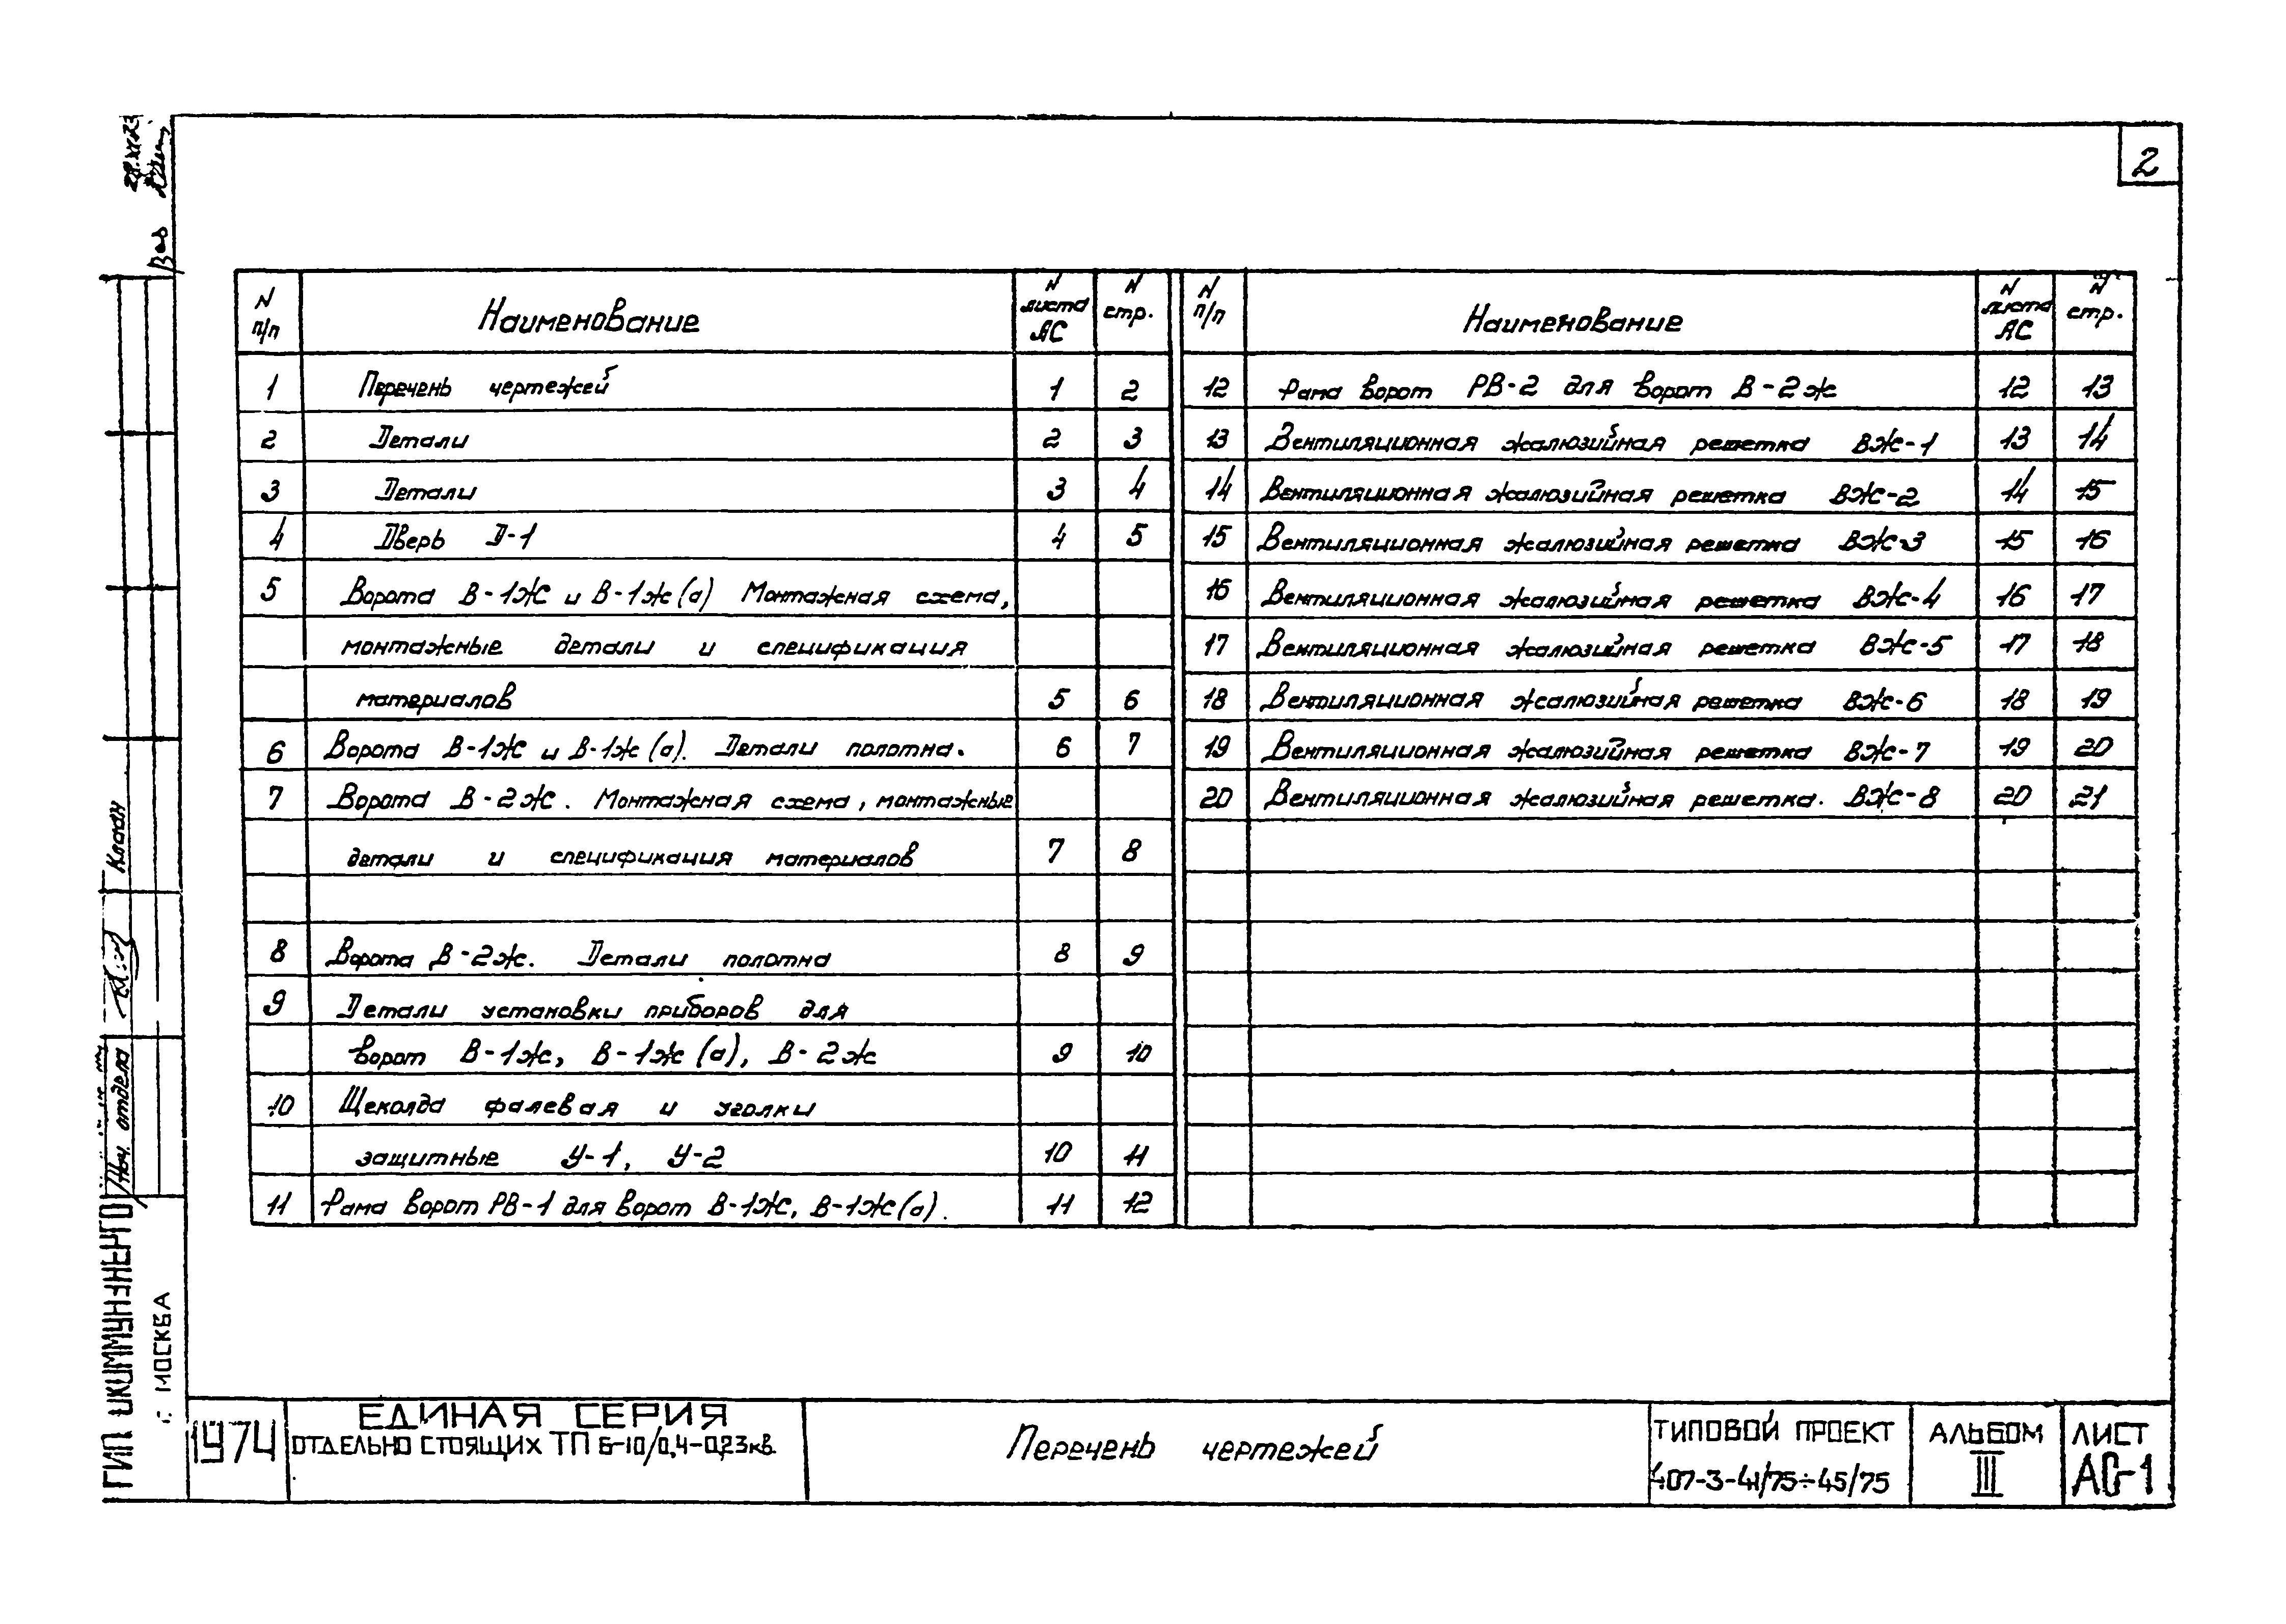 2
N п/п Наименование N листа АС N стр.
1 Перечень чертежей 1 2
2 Детали 2 3
3 Детали 3 4
4 Дверь Д-1 4 5
5 Ворота В-1Ж и В-1Ж(а) Монтажная схема,
монтажные детали и спецификация
материалов 5 6
6 Ворота В-1Ж и В-1Ж(а). Детали полотна. 6 7
7 Ворота В-2Ж. Монтажная схема, монтажные
детали и спецификация материалов 7 8
8 Ворота В-2Ж. Детали полотна 8 9
9 Детали установки приборов для
ворот В-1Ж, В-1Ж(а), В-2Ж 9 10
10 Щеколда фалевая и уголки
защитные У-1, У-2 10 11
11 Рама ворот РВ-1 для ворот В-1Ж, В-1Ж(а). 11 12
N п/п Наименование N листа АС N стр.
12 Рама ворот РВ-2 для ворот В-2Ж 12 13
13 Вентиляционная жалюзийная решетка ВЖ-1 13 14
14 Вентиляционная жалюзийная решетка ВЖ-2 14 15
15 Вентиляционная жалюзийная решетка ВЖ-3 15 16
16 Вентиляционная жалюзийная решетка ВЖ-4 16 17
17 Вентиляционная жалюзийная решетка ВЖ-5 17 18
18 Вентиляционная жалюзийная решетка ВЖ-6 18 19
19 Вентиляционная жалюзийная решетка ВЖ-7 19 20
20 Вентиляционная жалюзийная решетка. ВЖ-8 20 21
Нач. отдела Клаан
ГИПРОКОММУНЭНЕРГО
г. МОСКВА
1974
ЕДИНАЯ СЕРИЯ
ОТДЕЛЬНО СТОЯЩИХ ТП 6-10/0,4-0,23кв.
Перечень чертежей
ТИПОВОЙ ПРОЕКТ
407-3-41/75÷45/75
АЛЬБОМ
III
ЛИСТ
АС-1